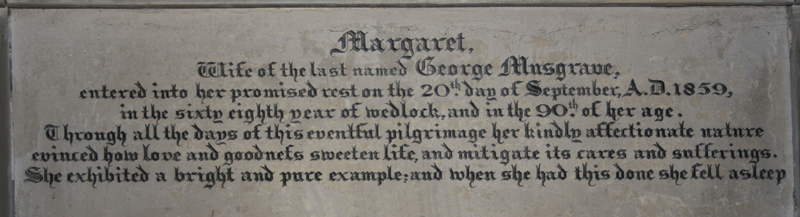 Margaret,
Wife of the last named George Musgrave,
entered into her promised rest on the 20th day of September, A.D. 1859,
in the sixty eighth year of wedlock, and in the 90th of her age.
Through all the days of this eventful pilgrimage her kindly affectionate nature
evinced how love and goodneſs sweeten life, and mitigate its cares and sufferings.
She exhibited a bright and pure example; and when she had this done she fell asleep